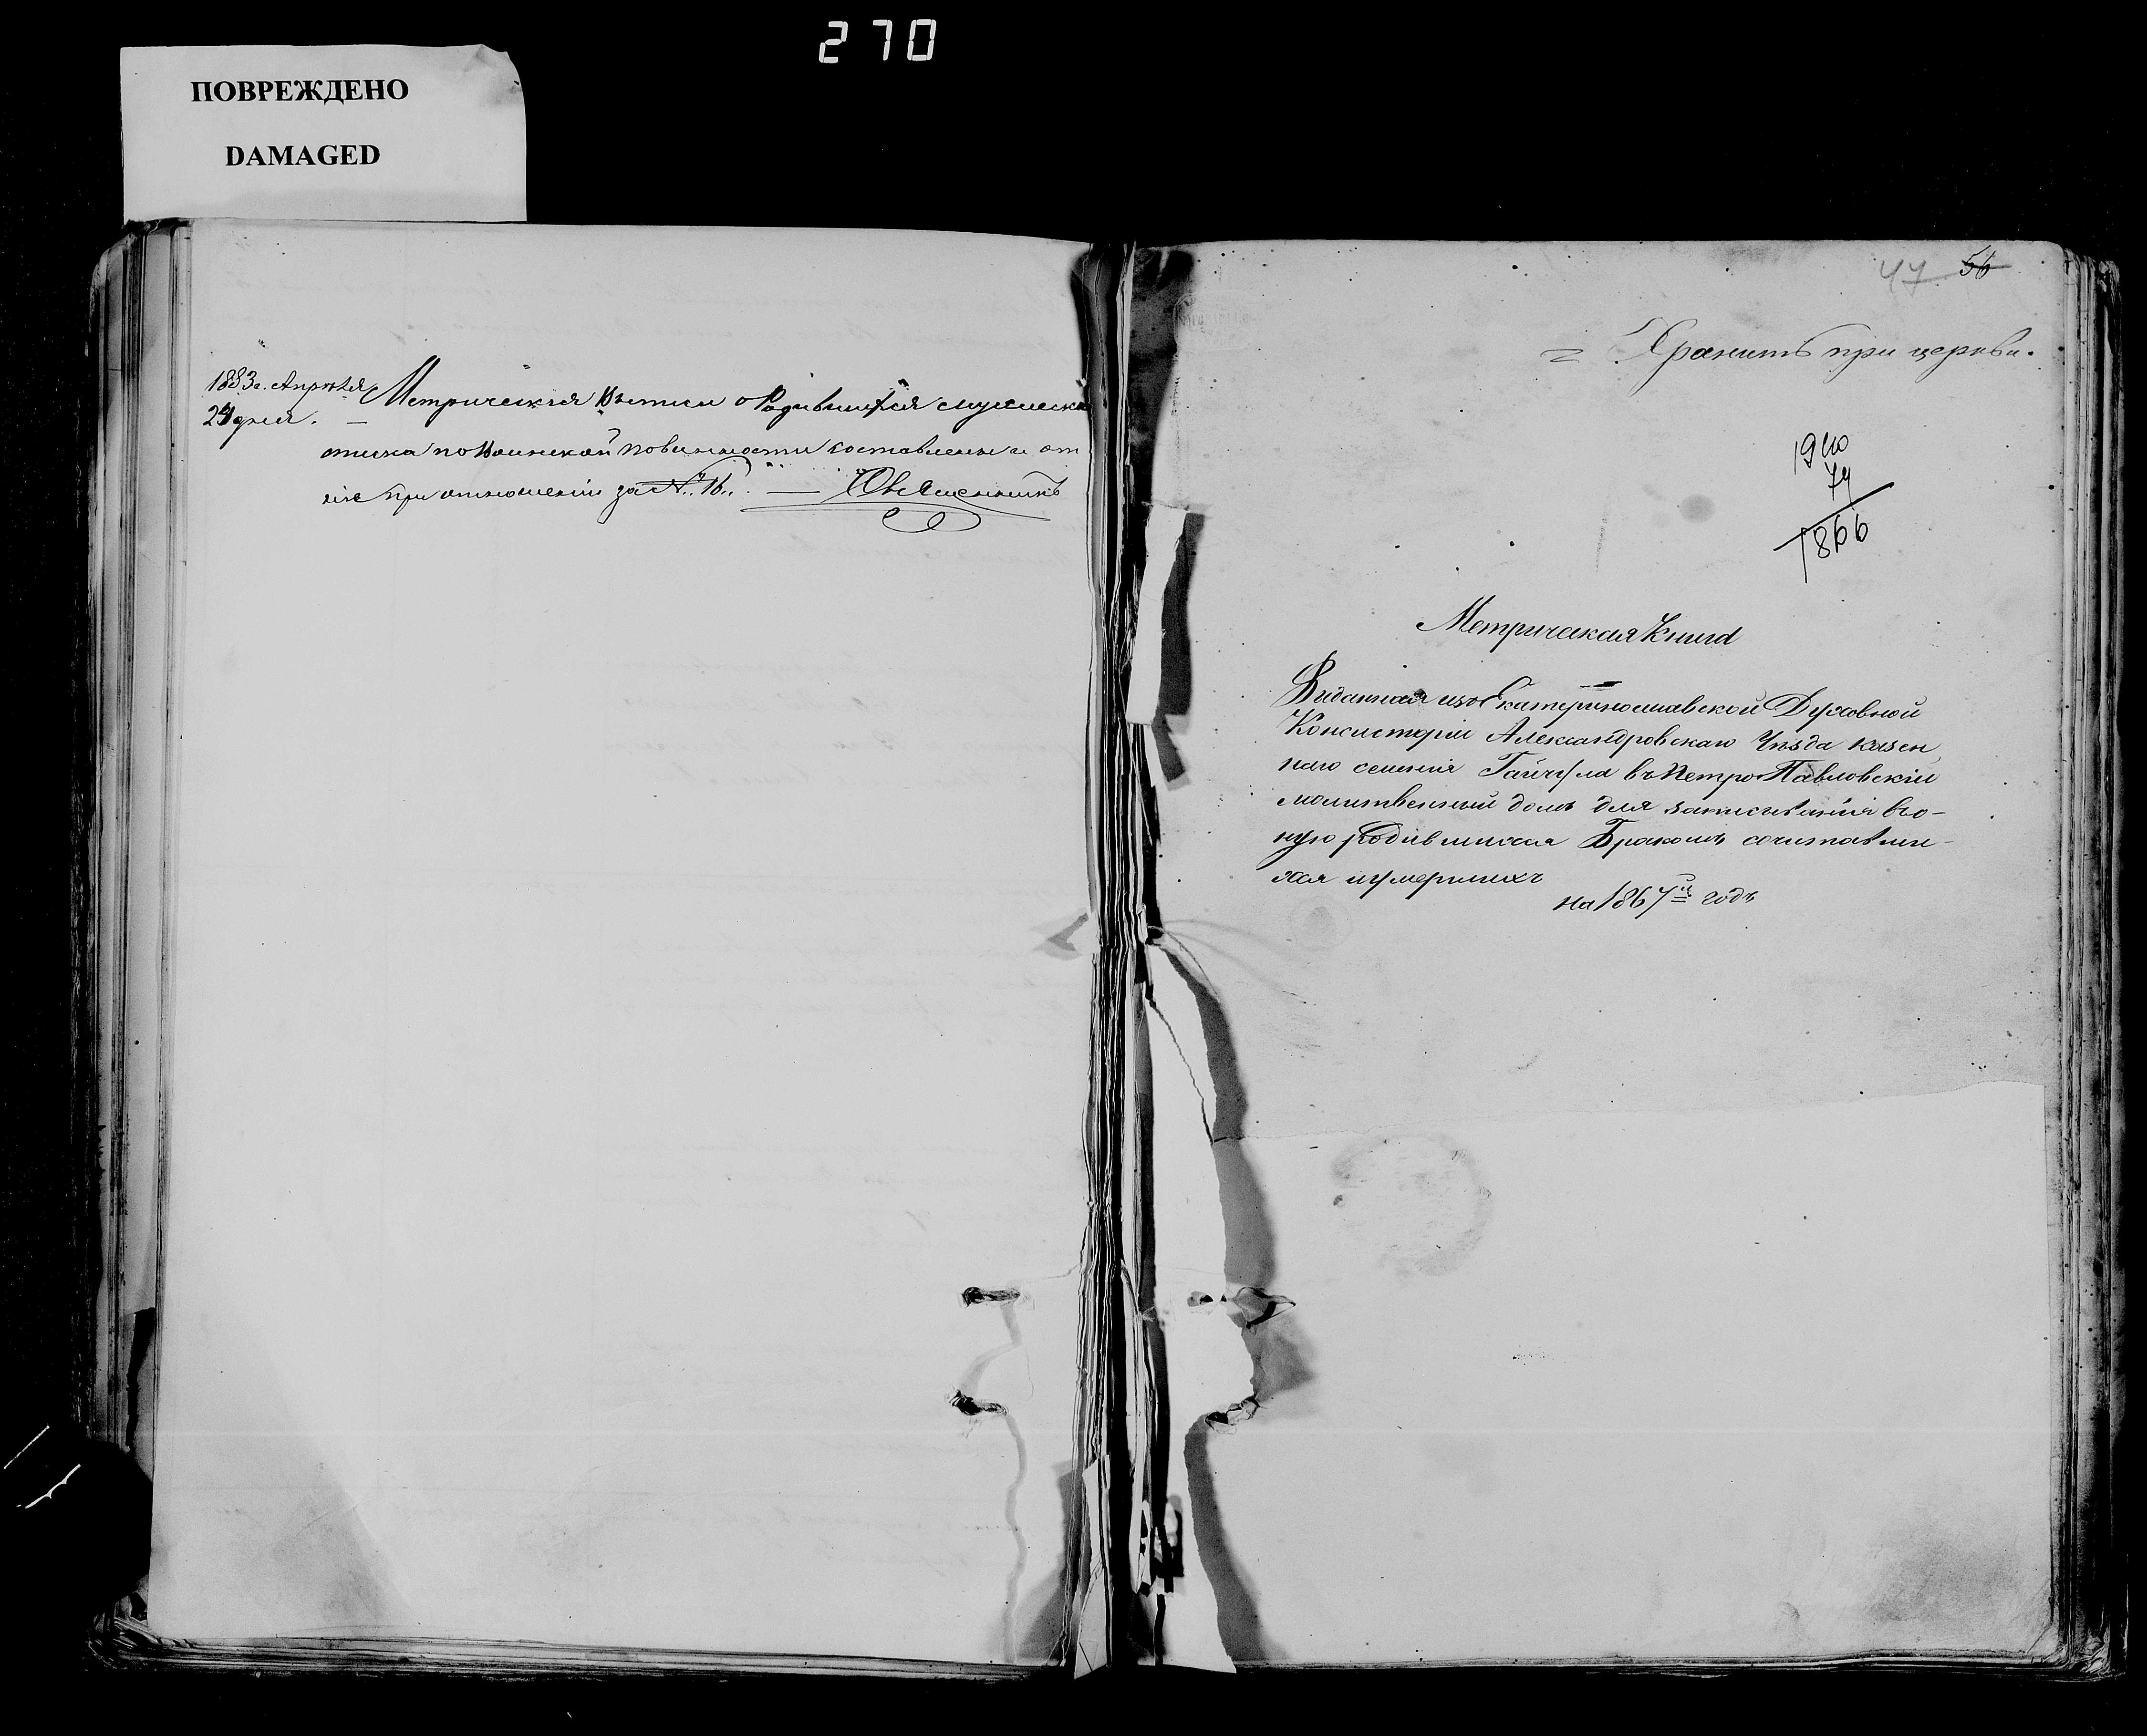 270
ПОВРЕЖДЕНО
DAMAGED
1883 г. Апрѣля
24 дня. — Метрическія выписи о Родившихся мужеска
по Воинской повинности составлены и
при отношеніи за №. 16. — Священникъ
47 56
Хранить при церкви.
1940
74
1866
Метрическая Книга
Виданная изъ Екатеринославской Духовной
Консисторіи Александровскаго Уѣзда казен
наго селенія Гайчула въ Петро Павловскій
молитвенный домъ для записыванія во-
ную родившихся Бракомъ сочетавши-
хся иумершихъ
на 1867й годъ